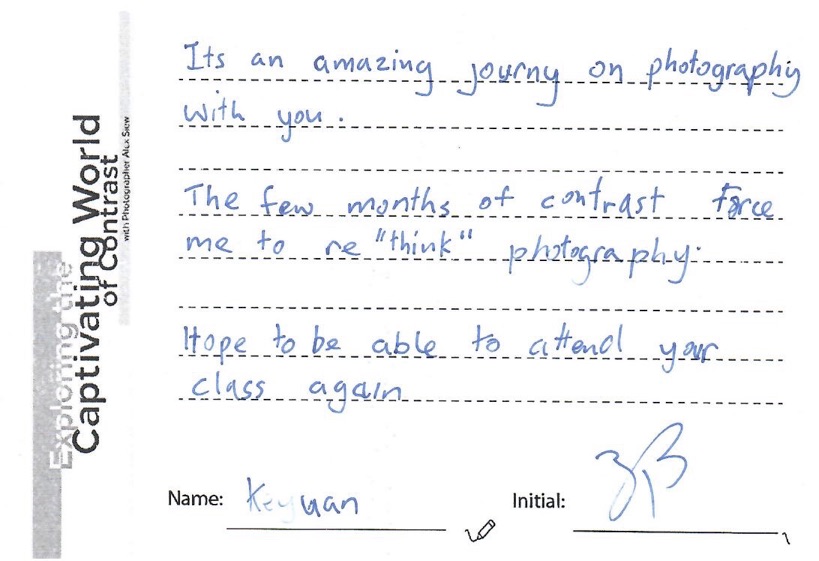 Its an amazing journy on photography
with you.
The few months of contrast force
me to re "think" photography.
Hope to be able to attend your
class again
Name: Keyuan
Initial:
Exploring the
Captivating World
of Contrast
with Photographer Alex Siew